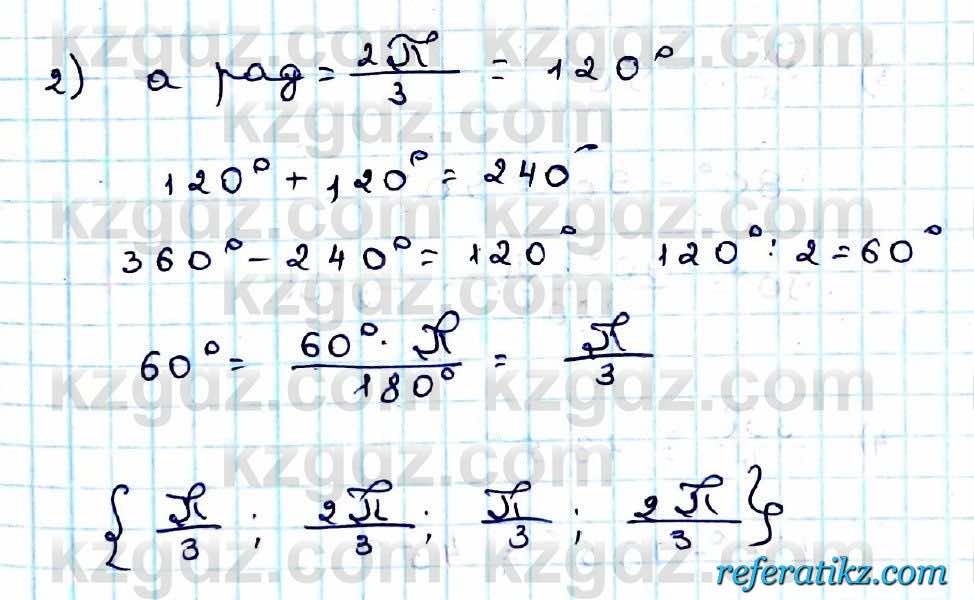 kzgdz.com kzgdz.com
2) a рад = 2π/3 = 120°
kzgdz.com
120° + 120° = 240°
kzgdz.com kzgdz.com
360° - 240° = 120° 120° : 2 = 60°
kzgdz.com
60° = 60° · π/180° = π/3
kzgdz.com kzgdz.com
kzgdz.com
{π/3; 2π/3; π/3; 2π/3}
kzgdz.com kzgdz.com
referatikz.com